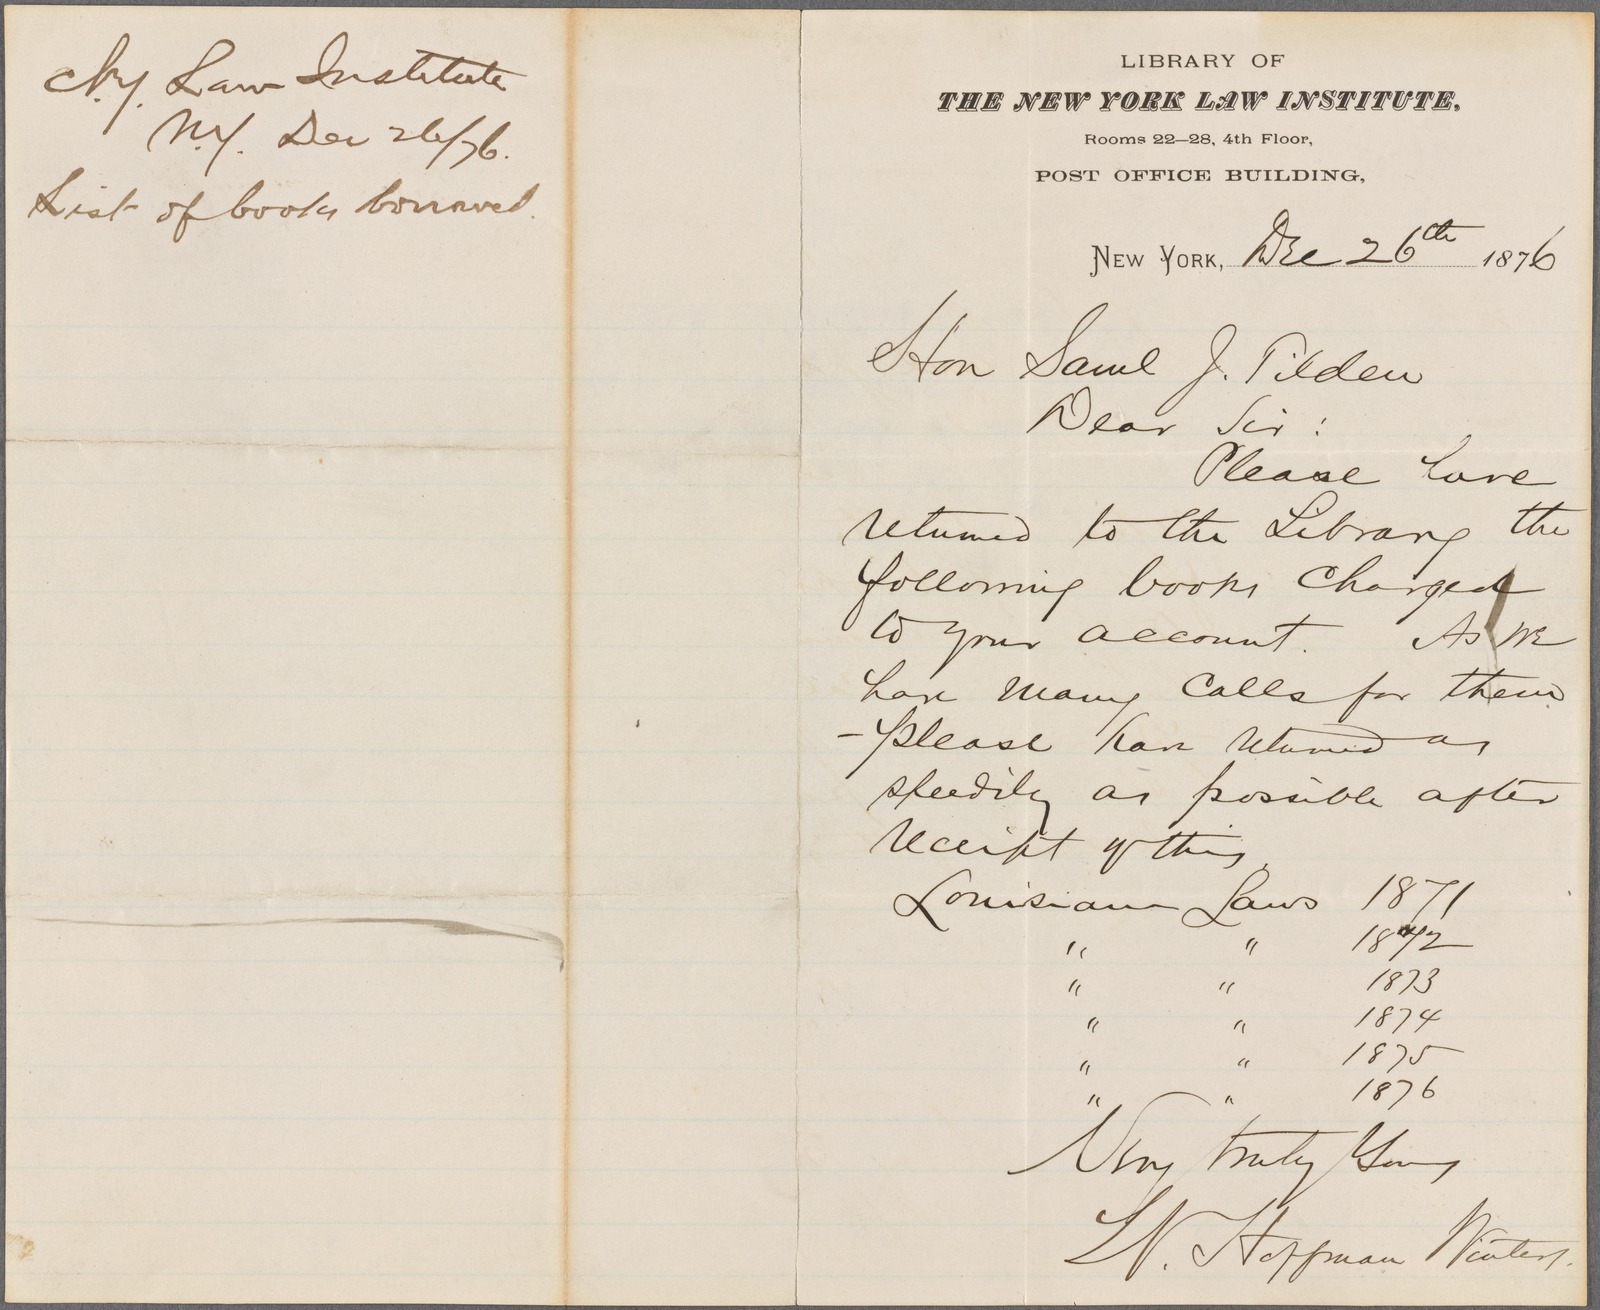 N.Y. Law Institute
N.Y. Dec 26/76.
List of books borrowed.
LIBRARY OF
THE NEW YORK LAW INSTITUTE,
Rooms 22—28, 4th Floor,
POST OFFICE BUILDING,
NEW YORK, Dec 26th 1876
Hon Saml J. Tilden
Dear Sir:
Please have
returned to the Library the
following books charged
to your account. As we
have many calls for them
- please have returned as
speedily as possible after
receipt of this.
Louisiana Laws 1871
" " 1872
" " 1873
" " 1874
" " 1875
" " 1876
Very truly Yours
Hoffman